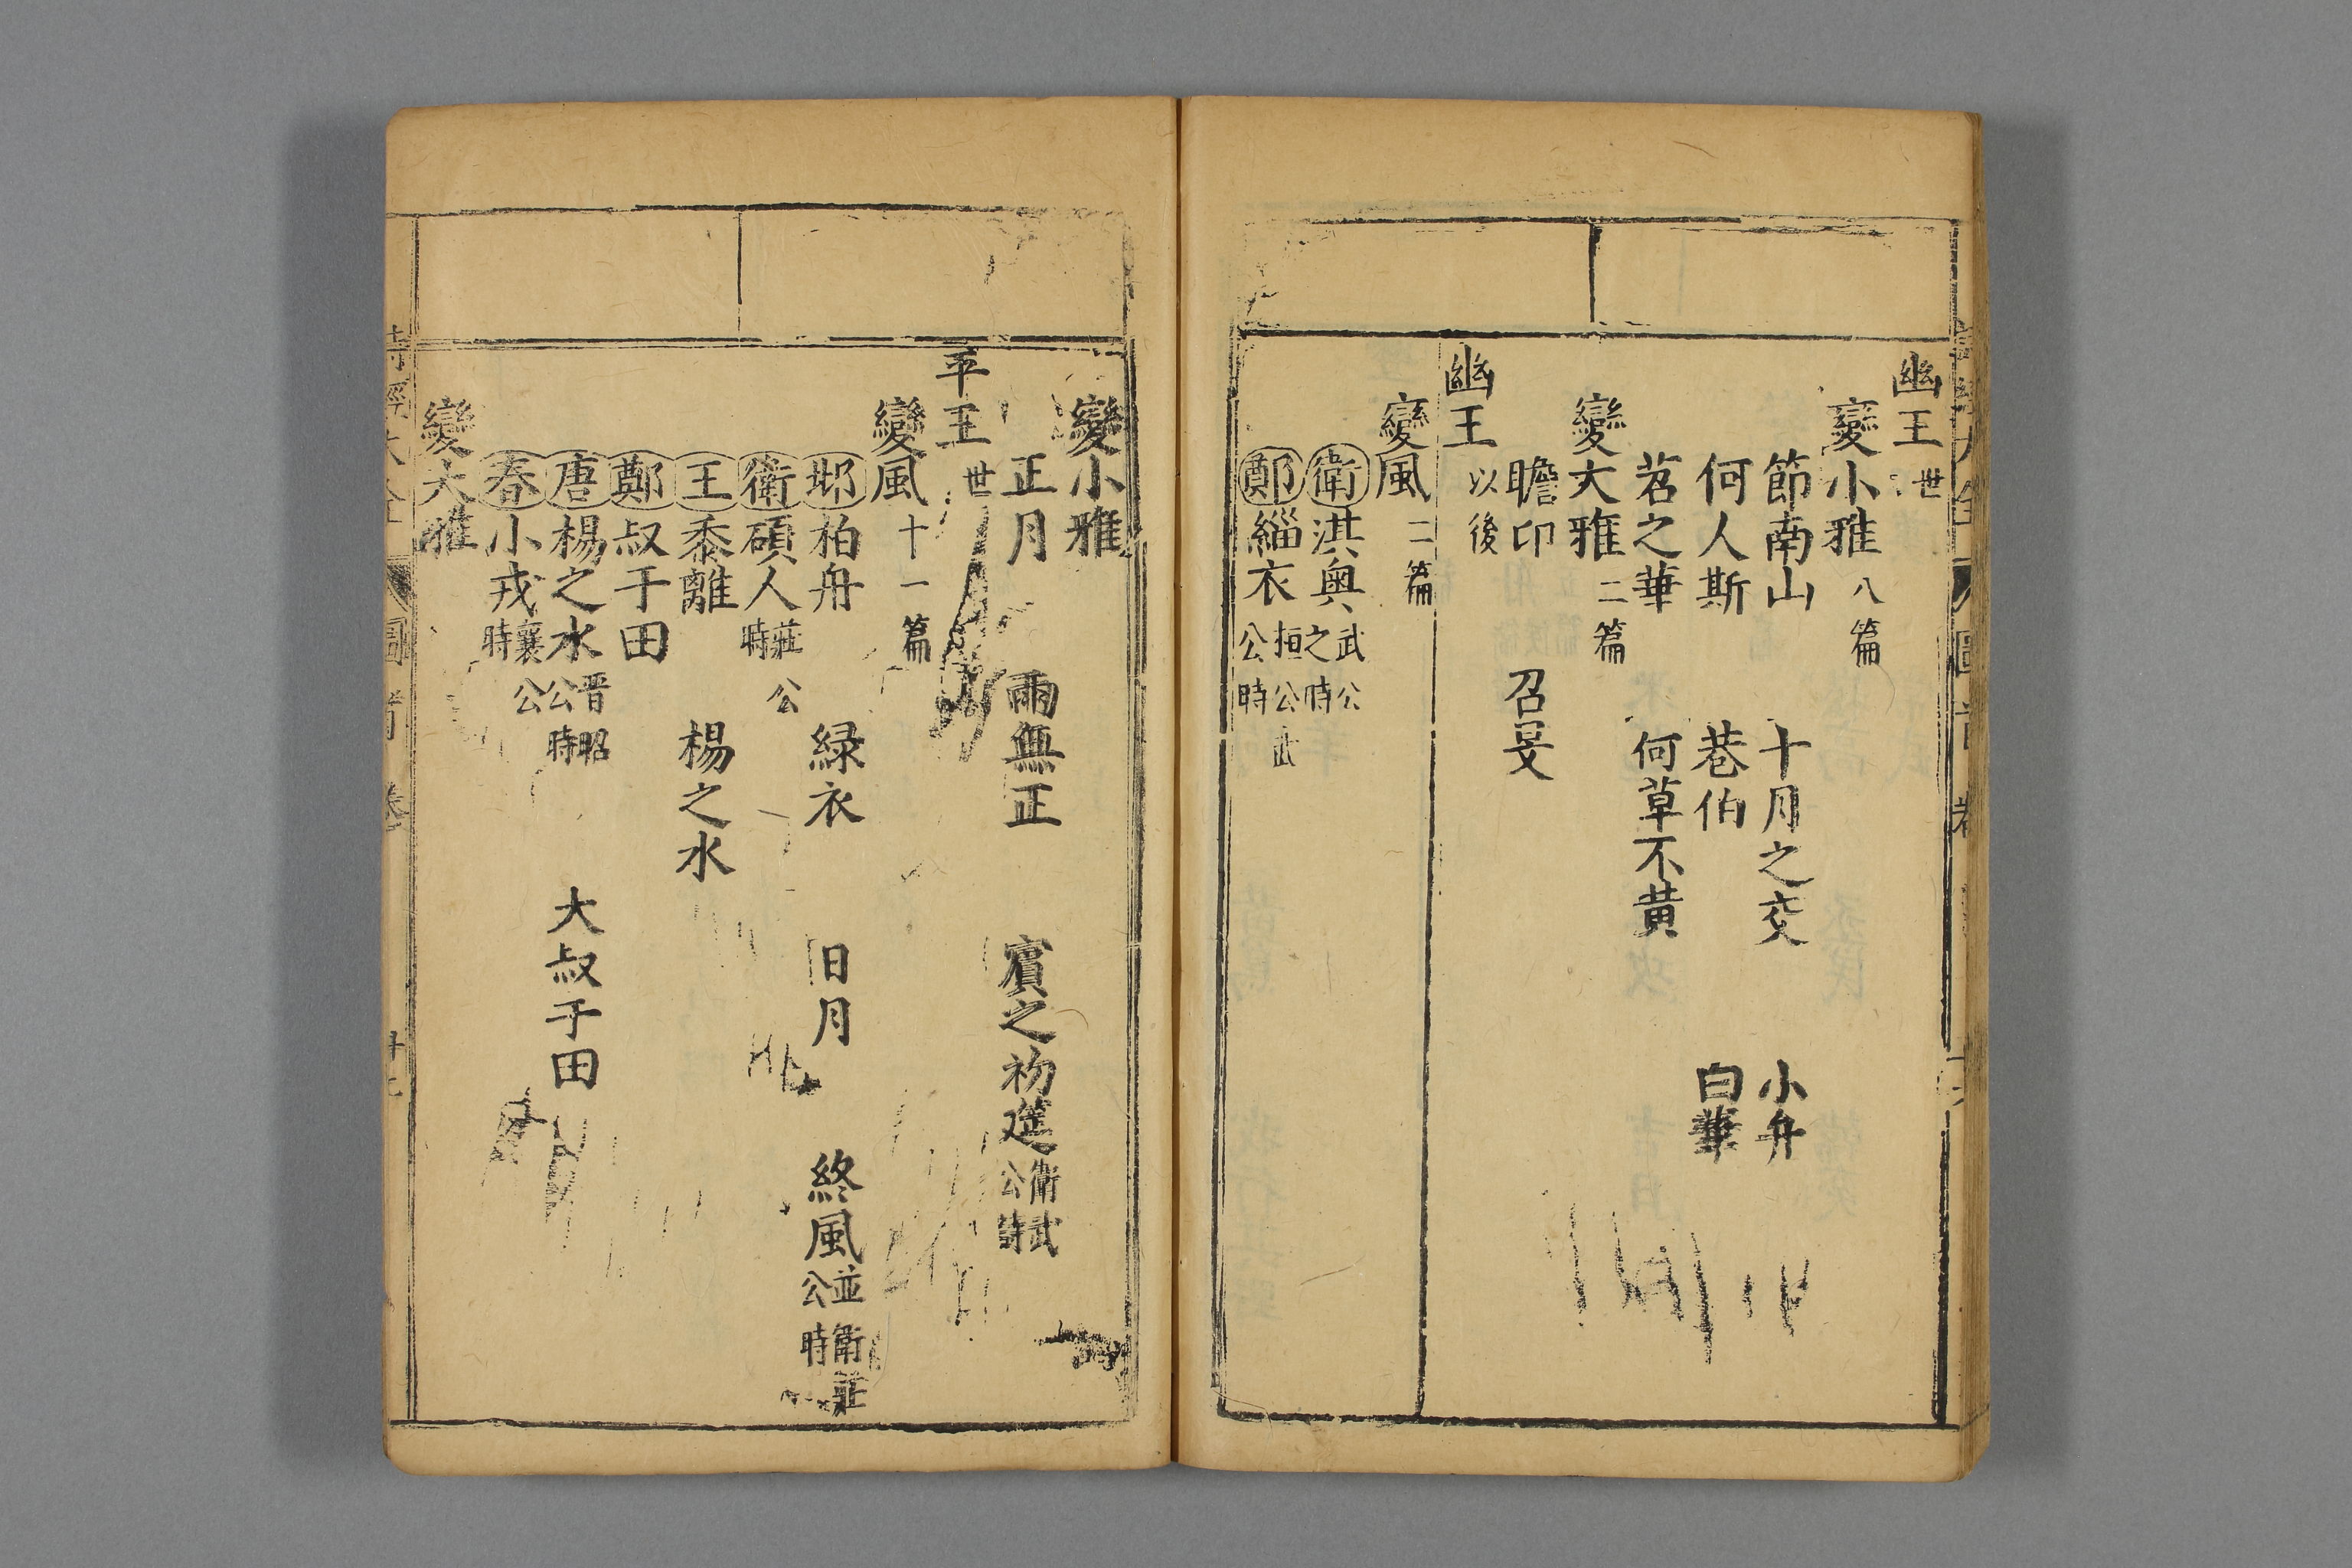 幽王世
變小雅八篇
節南山 十月之交 小弁
何人斯 巷伯 白華
苕之華 何草不黄
變大雅二篇
瞻卬 召旻
幽王以後
變風二篇
衛淇奥武公之時
鄭緇衣桓公武公時
變小雅
正月 雨無正 賓之初筵衛武公時
平王世
變風十一篇
邶柏舟 緑衣 日月 終風並衛莊公時
衛碩人莊公時
王黍離 楊之水
鄭叔于田 大叔于田
唐楊之水晋昭公時
秦小戎襄公時
變大雅